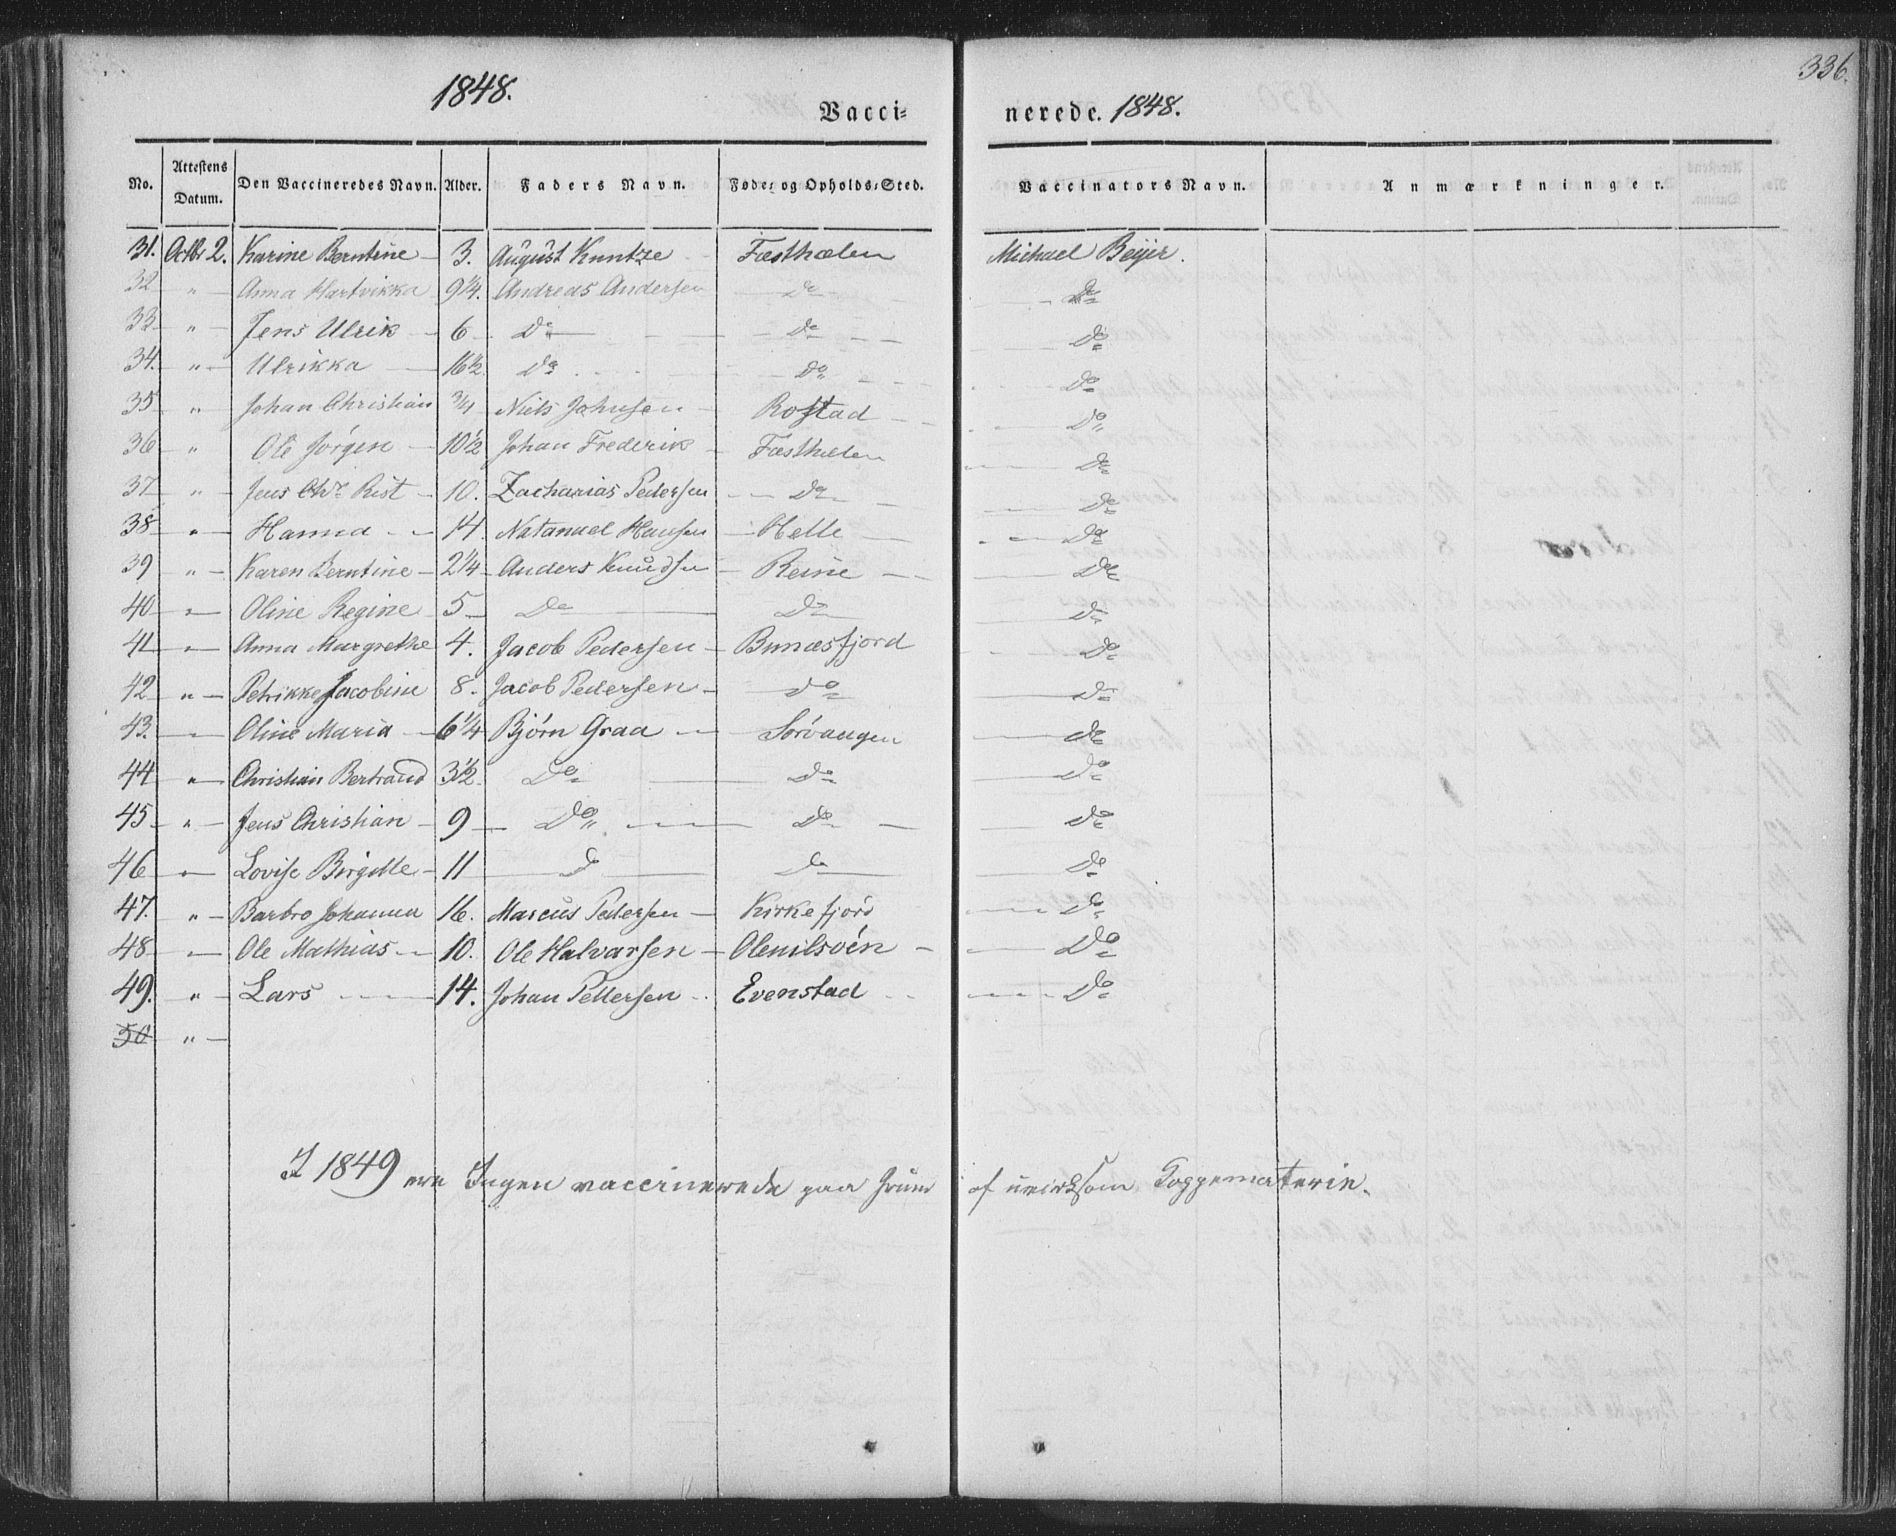 336.
1848.
Vacci-
nerede. 1848.
No. Attestens Datum. Den Vaccineredes Navn. Alder. Faders Navn. Føde- og Opholds-Sted. Vaccinators Navn. Anmærkninger.
31. Octbr 2. Karine Berntine 3. August Kuntze Fæsthælen Michael Beijer.
32 " Anna Hartvikka 9 1/4. Andreas Andersen Do Do
33 " Jens Ulrik 6 Do Do Do
34. " Ulrikka 16 1/2 Do Do Do
35 " Johan Christian 3/4 Niels Johnsen Rostad Do
36 " Ole Jørgen 10 1/2 Johan Frederik Fæsthælen Do
37 " Jens Chr. Rist 10. Zacharias Pedersen Do Do
38 " Hanna 14 Natanael Hansen Helle Do
39 " Karen Berntine 2 1/4 Anders Knudsen Reine Do
40 " Oline Regine 5 Do Do Do
41 " Anna Margrethe 4. Jacob Pedersen Bunæsfjord Do
42 " Petrikke Jacobine 8. Jacob Pedersen Do Do
43. " Oline Maria 6 1/4 Bjørn Graa Sørvaugen Do
44 " Christian Bertrand 3 1/2. Do Do Do
45 " Jens Christian 9 Do Do Do
46 " Lovise Birgitte 11 Do Do Do
47. " Barbro Johanna 16. Marcus Pedersen Kirkefjord Do
48 " Ole Mathias 10. Ole Halvorsen Olenilsvön Do
49. " Lars 14. Johan Pettersen Evenstad Do
50 "
I 1849 ere Ingen vaccinerede paa Grund af uvirksom Koppematerie.